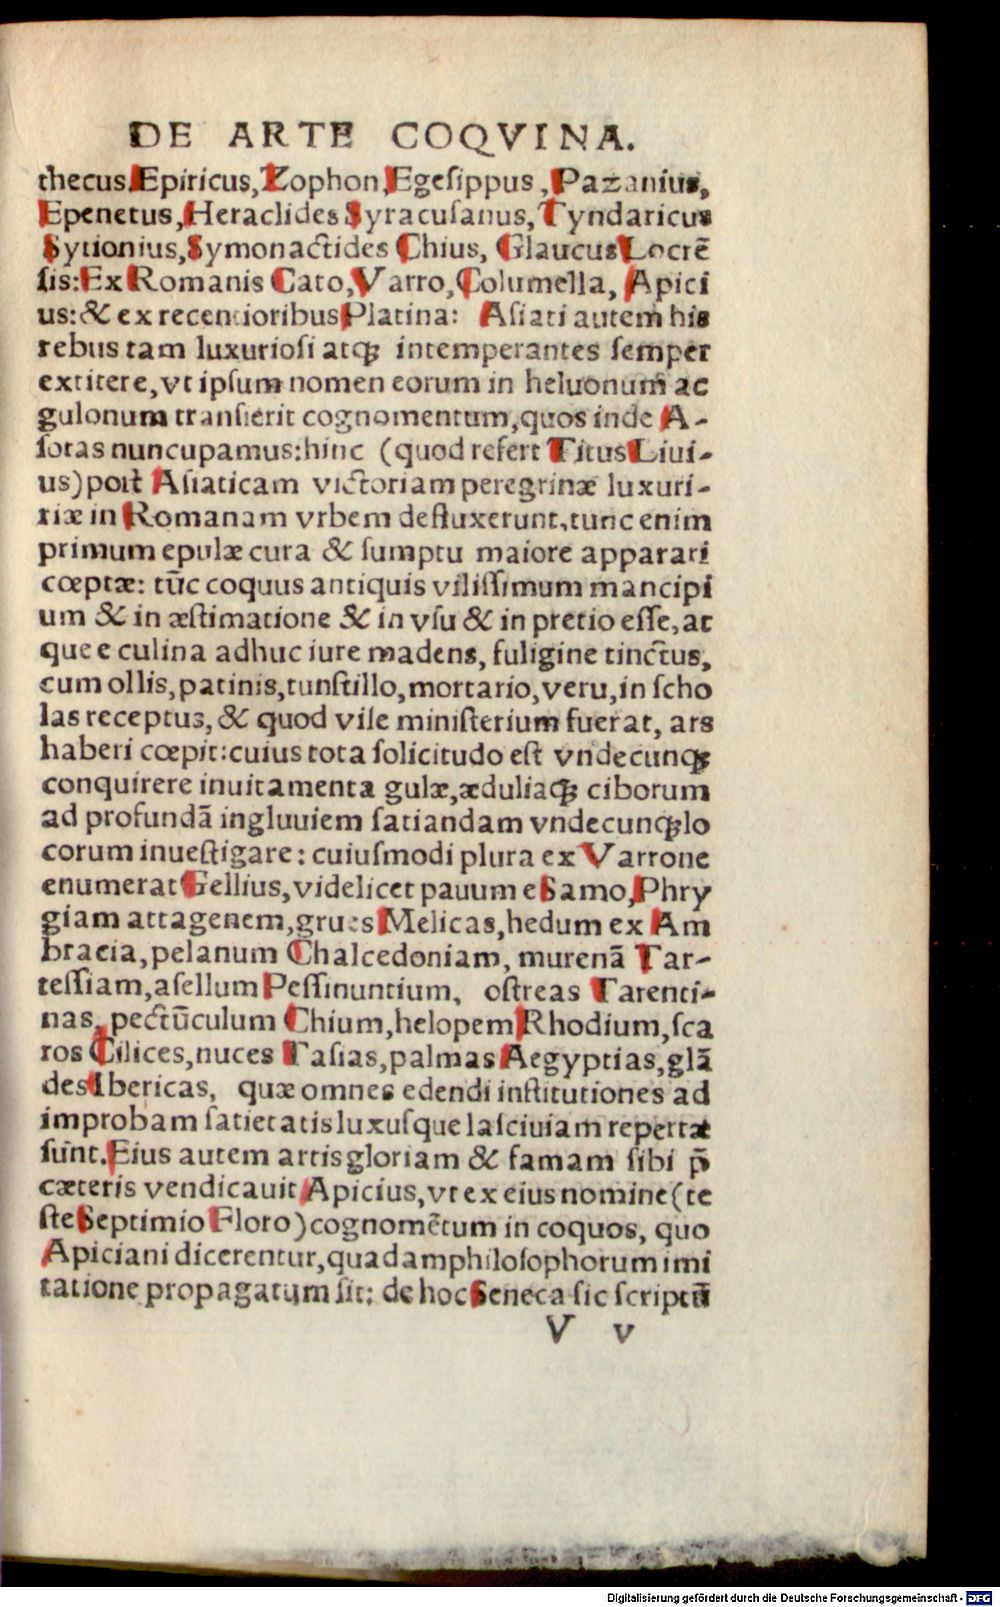 DE ARTE COQVINA.
thecus Epiricus, Zophon, Egesippus, Pazanius,
Epenetus, Heraclides Syracusanus, Tyndaricus
Sytionius, Symonactides Chius, Glaucus Locrē
sis: Ex Romanis Cato, Varro, Columella, Apici
us: & ex recentioribus Platina: Asiati autem his
rebus tam luxuriosi atqꝫ intemperantes semper
extitere, vt ipsum nomen eorum in heluonum ac
gulonum transierit cognomentum, quos inde A-
sotas nuncupamus: hinc (quod refert Titus Liui-
us) post Asiaticam victoriam peregrinæ luxuri-
riæ in Romanam vrbem defluxerunt, tunc enim
primum epulæ cura & sumptu maiore apparari
cœptæ: tūc coquus antiquis vilissimum mancipi
um & in æstimatione & in vsu & in pretio esse, at
que e culina adhuc iure madens, fuligine tinctus,
cum ollis, patinis, tunstillo, mortario, veru, in scho
las receptus, & quod vile ministerium fuerat, ars
haberi cœpit: cuius tota solicitudo est vndecunqꝫ
conquirere inuitamenta gulæ, æduliaqꝫ ciborum
ad profundā ingluuiem satiandam vndecunqꝫ lo
corum inuestigare: cuiusmodi plura ex Varrone
enumerat Gellius, videlicet pauum e Samo, Phry
giam attagenem, grues Melicas, hedum ex Am
bracia, pelanum Chalcedoniam, murenā Tar-
tessiam, asellum Pessinuntium, ostreas Tarenti-
nas, pectūculum Chium, helopem Rhodium, sca
ros Cilices, nuces Tasias, palmas Aegyptias, glā
des Ibericas, quæ omnes edendi institutiones ad
improbam satietatis luxusque lasciuiam repertæ
sunt. Eius autem artis gloriam & famam sibi p̄
cæteris vendicauit Apicius, vt ex eius nomine (te
ste Septimio Floro) cognomētum in coquos, quo
Apiciani dicerentur, quadam philosophorum imi
tatione propagatum sit: de hoc Seneca sic scriptū
V v
Digitalisierung gefördert durch die Deutsche Forschungsgemeinschaft - DFG